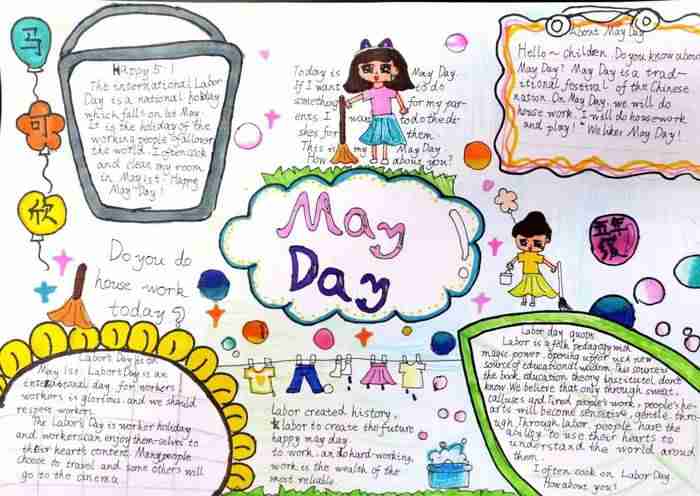 马
可
欣
Happy 5-1
The international Labor
Day is a national holiday
which falls on 1st May.
It is the holiday of the
working people fallover
the world. I often cook
and clean my room
in May 1st. Happy
May Day!
Today is May Day.
If I want to do
something for my par-
ents. I want to do the di-
shes for them.
This is my May Day
How about you?
About May Day
Hello~ children. Do you know about
May Day? May Day is a trad-
itional festival of the Chinese
nation. On May Day, we will do
house work. I will do housework
and play! We likes May Day!
May
Day
五年级
Do you do
house work
today?
Labor's Day is on
May 1st. Labor Day is an
international day for workers
workers is glorious, and we should
respect workers.
The Labor's Day is worker holiday
and workers can enjoy them selves to
their heart's content. Many people
choose to travel and some others will
go to the cinema.
Labor created history,
labor to create the future
happy may day.
to work, and hard-working,
work is the wealth of the
most reliable.
Labor day quots
Labor is a folk pedagogy with
magic power, opening up for us a new
source of educational wisdom. This source is
the book education theory institute I don't
know. We believe that only through sweat,
calluses and tired people's work, people's he-
arts will become sensitive, gentle. thro-
ugh. Through labor, people have the
ability to use their hearts to
understand the world around
them.
I often cook on Labor Day
How about you!